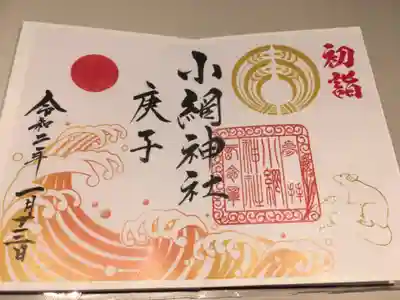 初詣
小網神社
庚子
令和二年
一月十二日
小網
神社